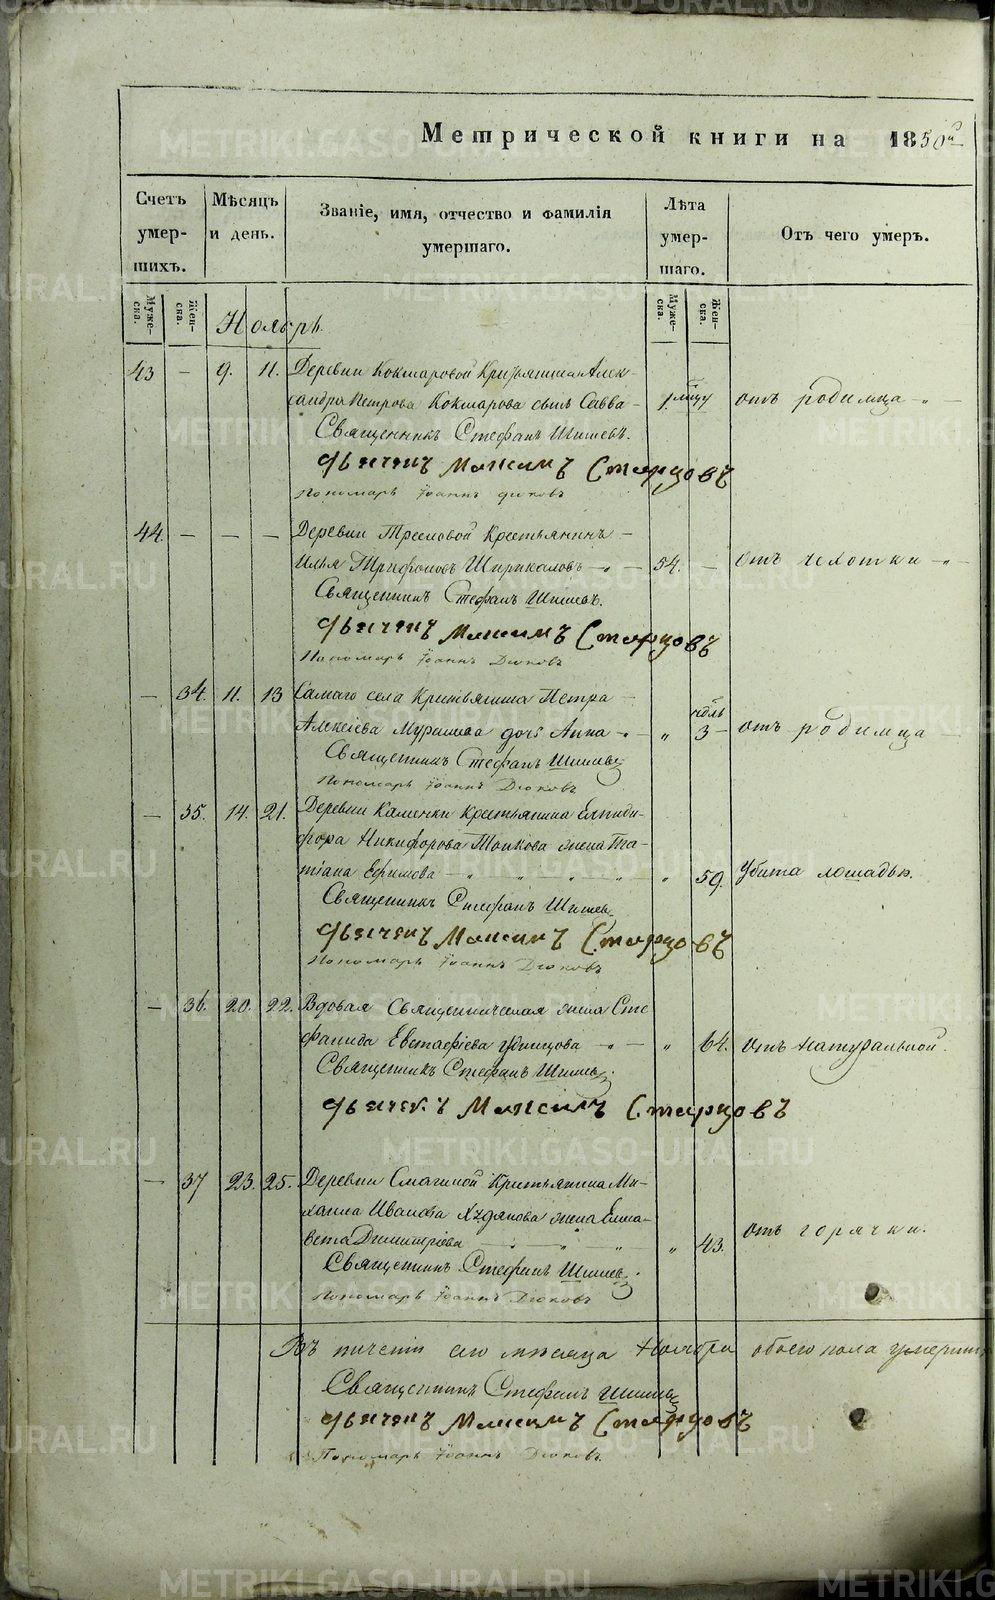 Метрической книги на 1850й
Счетъ умер-шихъ.
Мѣсяцъ и день.
Званіе, имя, отчество и фамилія умершаго.
Лѣта умер-шаго.
Отъ чего умеръ.
Муже-ска.
Жен-ска.
Муже-ска.
Жен-ска.
Ноябрь.
43 — 9. 11. Деревни Кокшаровой Крестьянина Алек-
сандра Петрова Кокшарова сынъ Савва — 1 мцу отъ родимца — „ —
Священникъ Стефанъ Шишевъ.
дьячекъ Максимъ Старцовъ
Пономарь Іоаннъ Дюковъ
44. — — — Деревни Крестьянинъ —
Илья Трифоновъ Ширыкаловъ — „ — 54. — отъ чехотки — „ —
Священникъ Стефанъ Шишевъ.
дьячекъ Максимъ Старцовъ
Пономарь Іоаннъ Дюковъ
— 34. 11. 13 Самаго села Крестьянина Петра —
Алексіева дочь Анна — „ — „ 3 — ндль отъ родимца —
Священникъ Стефанъ Шишевъ
Пономарь Іоаннъ Дюковъ
— 35. 14. 21. Деревни Каменки Крестьянина Елпиди-
фора Никифорова жена Та-
тіана Ефимова — „ „ „ „ „ 59. Убита лошадью.
Священникъ Стефанъ Шишевъ
дьячекъ Максимъ Старцовъ
Пономарь Іоаннъ Дюковъ
— 36. 20. 22. Вдовая Священническая жена Сте
фанида Евстафіева Удинцова — „ — „ 64. отъ натуральной.
Священникъ Стефанъ Шишевъ
дьячекъ Максимъ Старцовъ
— 37 23. 25. Деревни Смагиной Крестьянина Ми-
хаила Иванова Худякова жена Елиса-
вета Димитріева — „ — „ — „ 43. отъ горячки.
Священникъ Стефанъ Шишевъ
Пономарь Іоаннъ Дюковъ
Въ теченіи сего мѣсяца Ноября обоего пола умерши
Священникъ Стефанъ Шишевъ
дьячекъ Максимъ Старцовъ
Пономарь Іоаннъ Дюковъ
METRIKI.GASO-URAL.RU